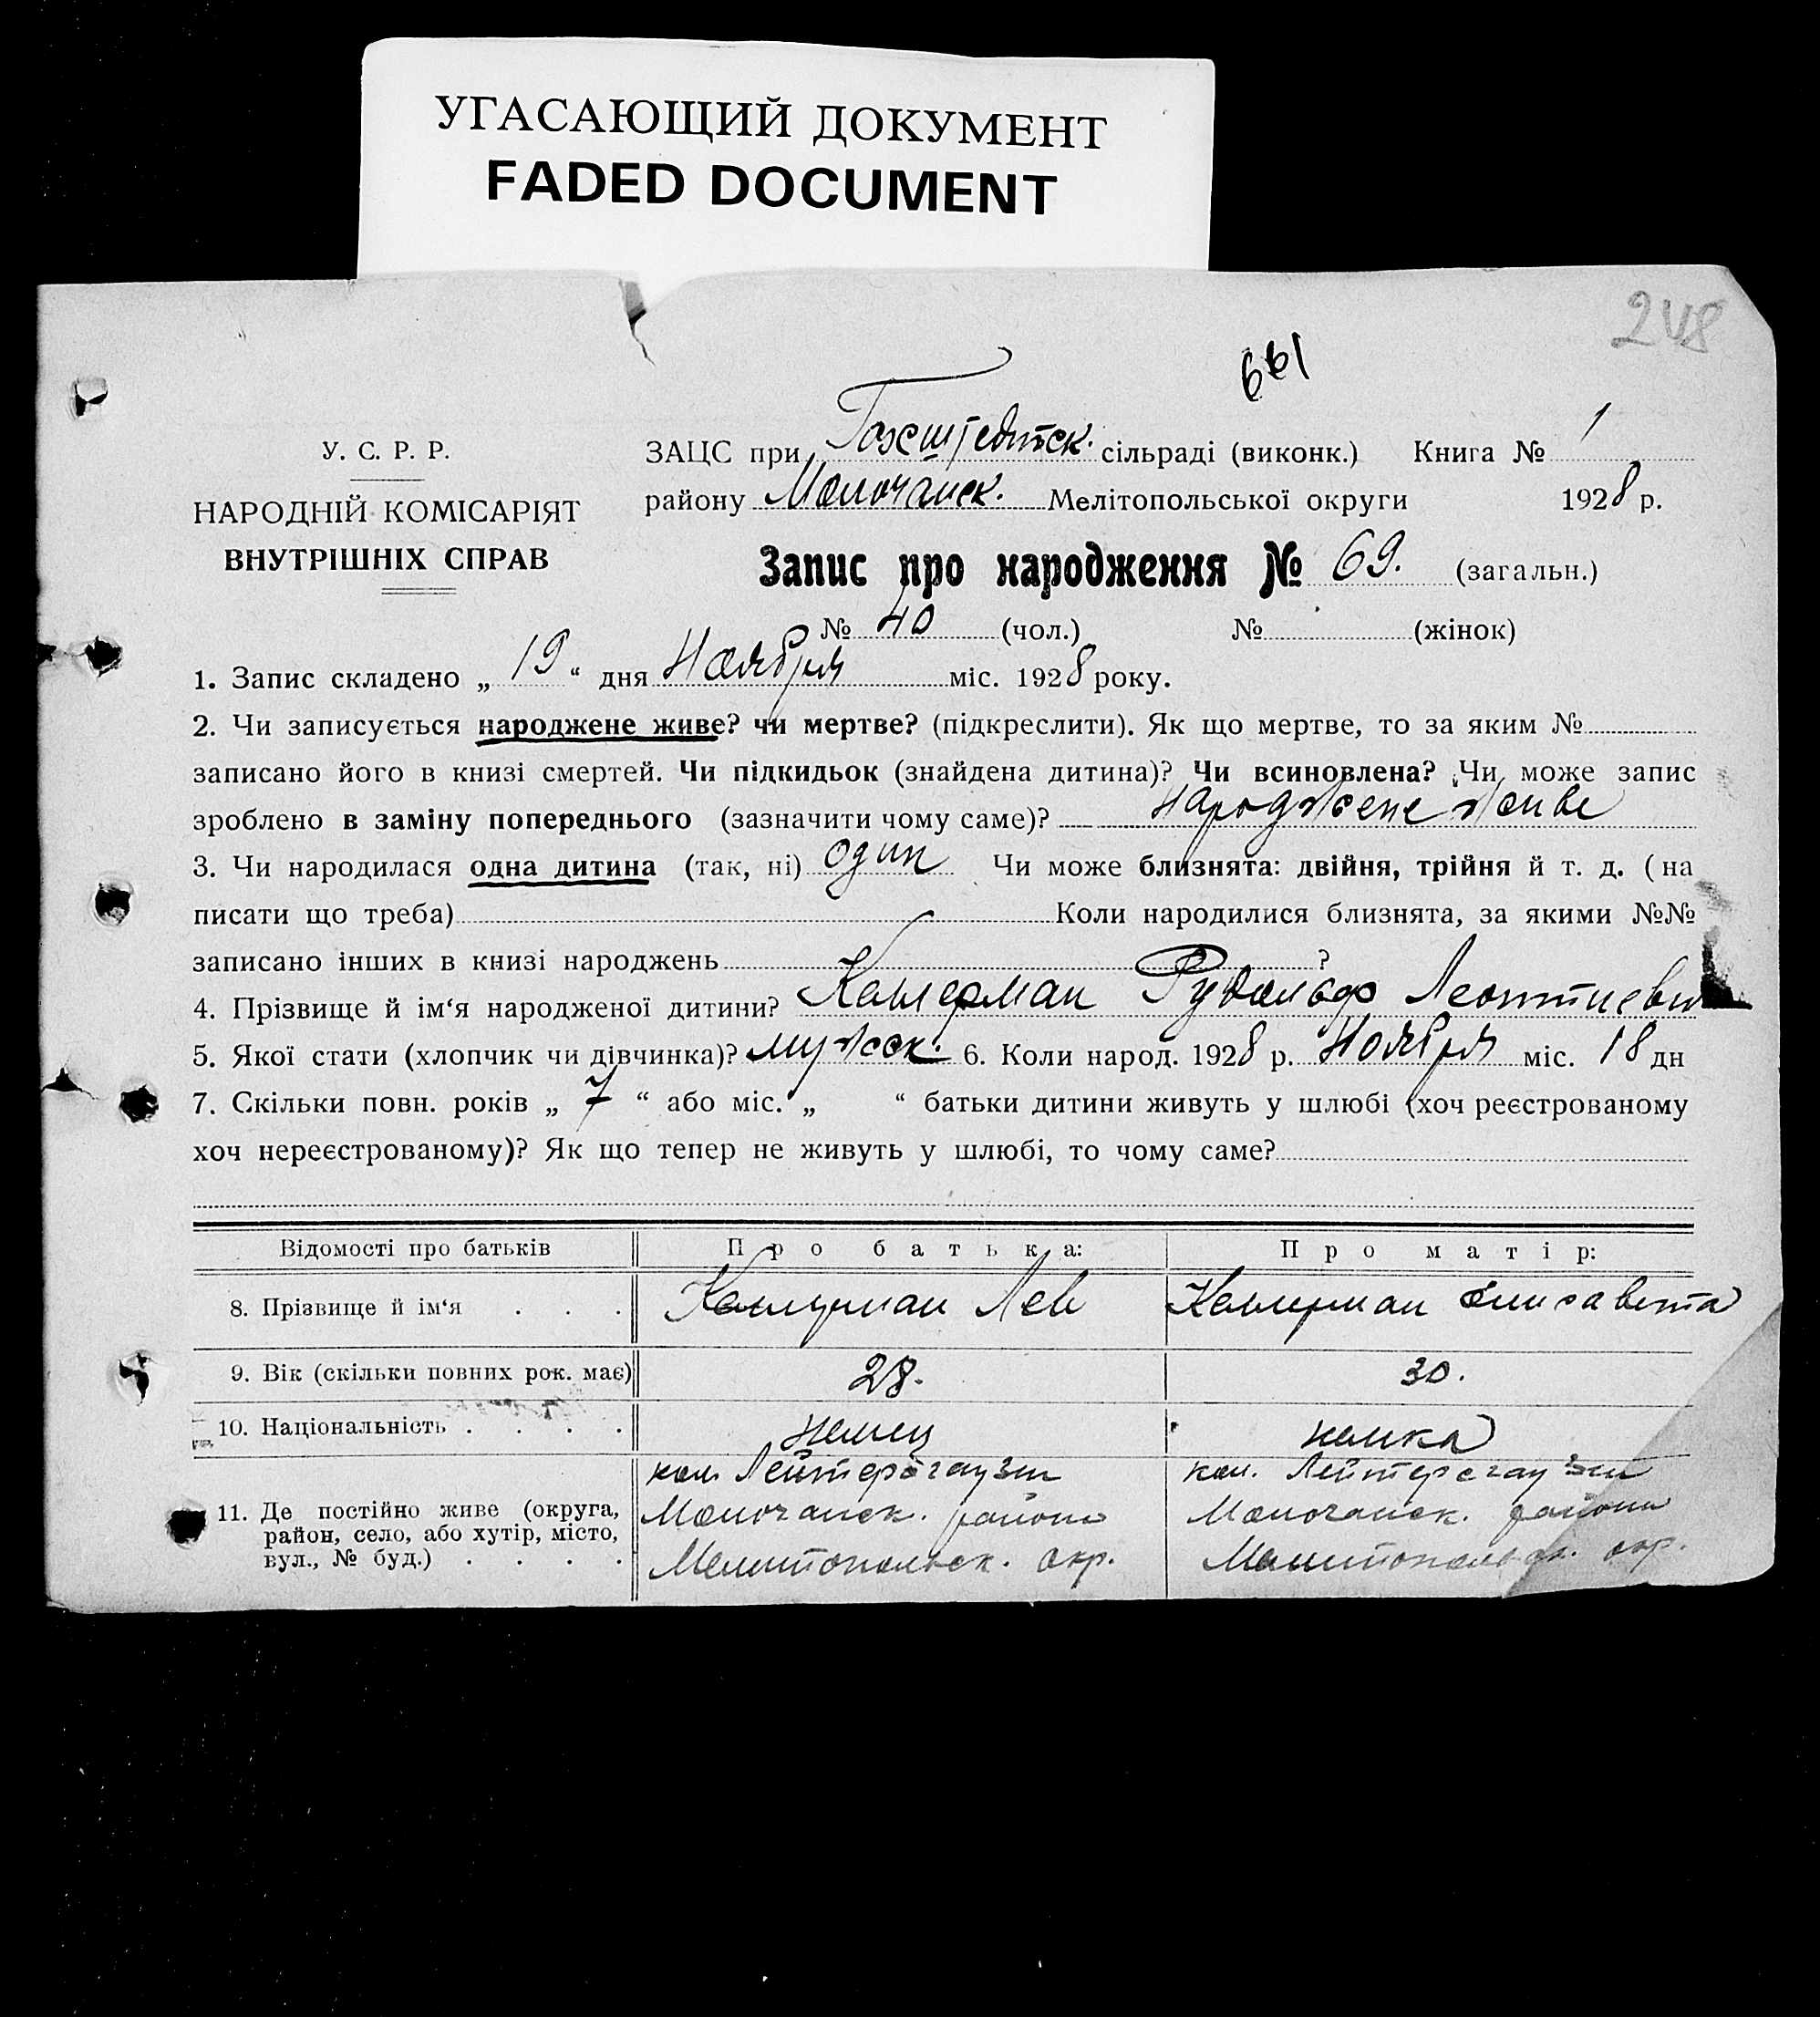 УГАСАЮЩИЙ ДОКУМЕНТ
FADED DOCUMENT
248
661
У. С. Р. Р.
НАРОДНІЙ КОМІСАРІЯТ
ВНУТРІШНІХ СПРАВ
ЗАЦС при Гохштедтск. сільраді (виконк.) Книга № 1
району Молочанск. Мелітопольської округи 1928 р.
Запис про народження № 69. (загальн.)
№ 40 (чол.) № (жінок)
1. Запис складено „ 19 “ дня Ноября міс. 1928 року.
2. Чи записується народжене живе? чи мертве? (підкреслити). Як що мертве, то за яким №
записано його в книзі смертей. Чи підкидьок (знайдена дитина)? Чи всиновлена? Чи може запис
зроблено в заміну попереднього (зазначити чому саме)? народжене живе
3. Чи народилася одна дитина (так, ні) один Чи може близнята: двійня, трійня й т. д. (на
писати що треба) Коли народилися близнята, за якими №№
записано інших в книзі народжень ?
4. Прізвище й ім‘я народженої дитини? Келлерман Рудольф Леонтиеви
5. Якої стати (хлопчик чи дівчинка)? мужск. 6. Коли народ. 1928 р. Ноября міс. 18 дн
7. Скільки повн. років „ 7 “ або міс. „ “ батьки дитини живуть у шлюбі (хоч реєстрованому
хоч нереєстрованому)? Як що тепер не живуть у шлюбі, то чому саме?
Відомості про батьків Про батька: Про матір:
8. Прізвище й ім‘я . . . Келлерман Лев Келлерман Елисавета
9. Вік (скільки повних рок. має) 28. 30.
10. Національність . . . . немец немка
11. Де постійно живе (округа, район, село, або хутір, місто, вул., № буд.) . . . .
кол. Лейтерсгаузен
Молочанск. района
Мелитопольск. окр.
кол. Лейтерсгаузен
Молочанск. района
Мелитопольск. окр.